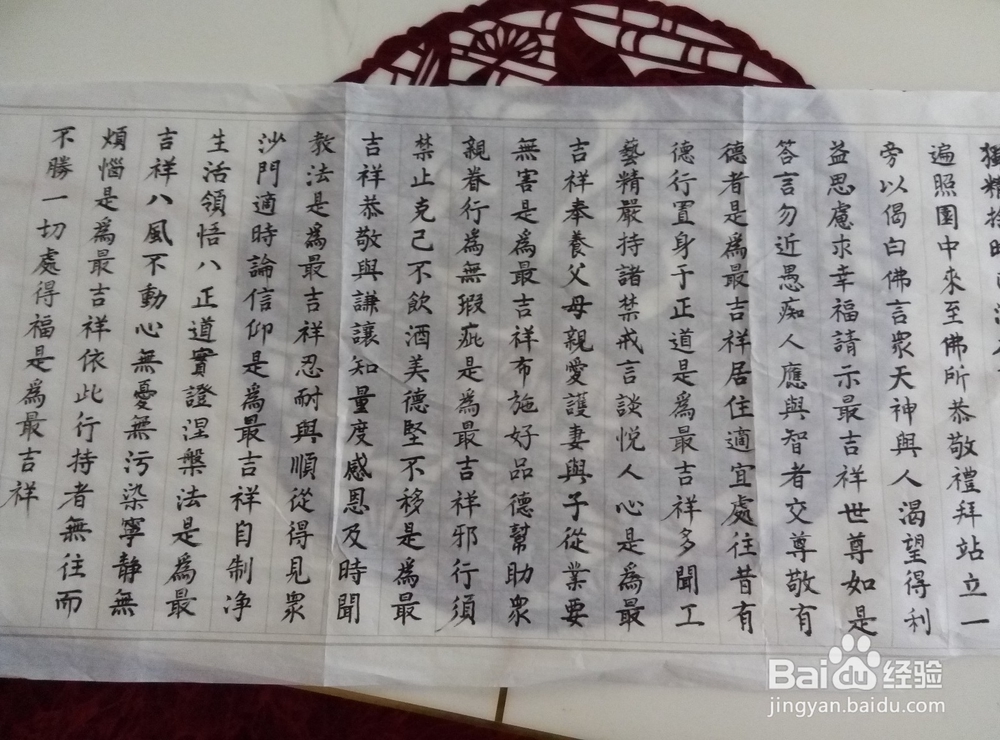 遍照園中來至佛所恭敬禮拜站立一
旁以偈白佛言眾天神與人渴望得利
益思慮求幸福請示最吉祥世尊如是
答言勿近愚痴人應與智者交尊敬有
德者是為最吉祥居住適宜處往昔有
德行置身于正道是為最吉祥多聞工
藝精嚴持諸禁戒言談悅人心是為最
吉祥奉養父母親愛護妻與子從業要
無害是為最吉祥布施好品德幫助眾
親眷行為無瑕疵是為最吉祥邪行須
禁止克己不飲酒美德堅不移是為最
吉祥恭敬與謙讓知量度感恩及時聞
教法是為最吉祥忍耐與順從得見眾
沙門適時論信仰是為最吉祥自制净
生活領悟八正道實證涅槃法是為最
吉祥八風不動心無憂無污染寧靜無
煩惱是為最吉祥依此行持者無往而
不勝一切處得福是為最吉祥
Baidu 经验
jingyan.baidu.com